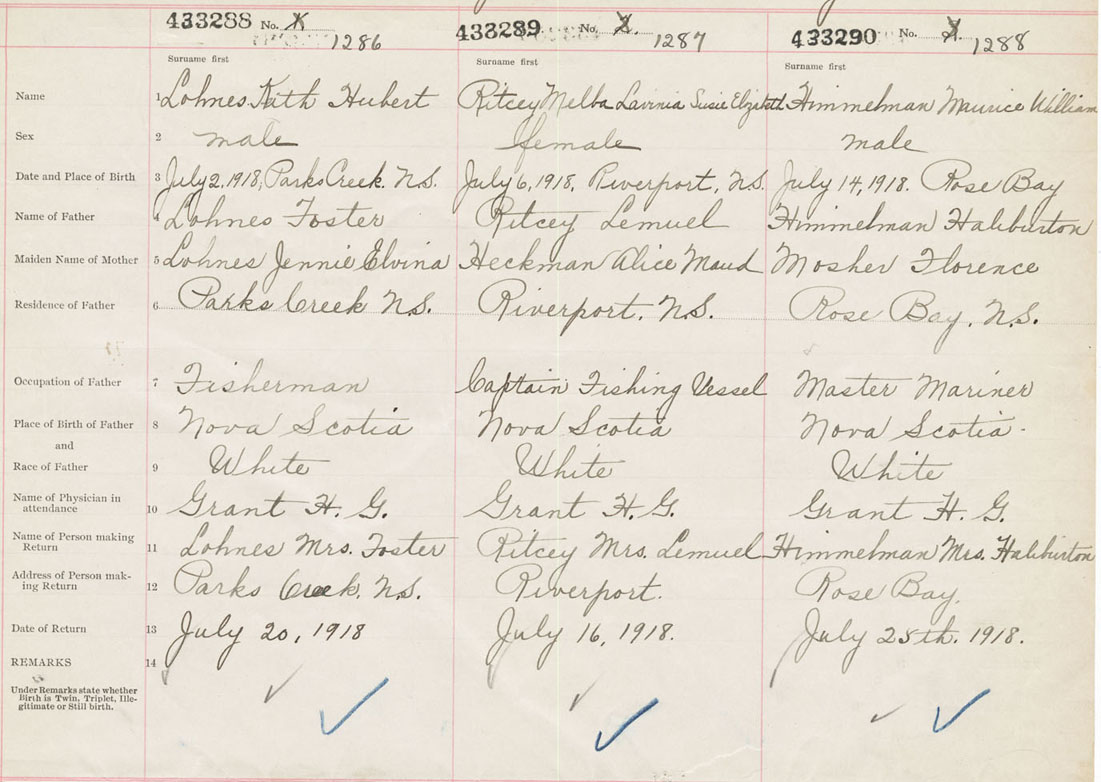 433288 No. X 1286 433289 No. X. 1287 433290 No. X. 1288
Surname first Surname first Surname first
Name 1 Lohnes Kith Hubert Ritcey Melba Lavinia Susie Elizabeth Himmelman Maurice William
Sex 2 male female male
Date and Place of Birth 3 July 2, 1918, Parks Creek. N.S. July 6, 1918, Riverport, N.S. July 14, 1918. Rose Bay
Name of Father 4 Lohnes Foster Ritcey Lemuel Himmelman Haliburton
Maiden Name of Mother 5 Lohnes Jennie Elvina Heckman Alice Maud Mosher Florence
Residence of Father 6 Parks Creek N.S. Riverport. N.S. Rose Bay, N.S.
Occupation of Father 7 Fisherman Captain Fishing Vessel Master Mariner
Place of Birth of Father 8 Nova Scotia Nova Scotia Nova Scotia.
and
Race of Father 9 White White White
Name of Physician in
attendance 10 Grant H. G. Grant H. G. Grant H. G.
Name of Person making
Return 11 Lohnes Mrs. Foster Ritcey Mrs. Lemuel Himmelman Mrs. Haliburton
Address of Person mak-
ing Return 12 Parks Creek. N.S. Riverport. Rose Bay.
Date of Return 13 July 20, 1918 July 16, 1918. July 25th. 1918.
REMARKS 14
Under Remarks state whether
Birth is Twin, Triplet, Ille-
gitimate or Still birth.